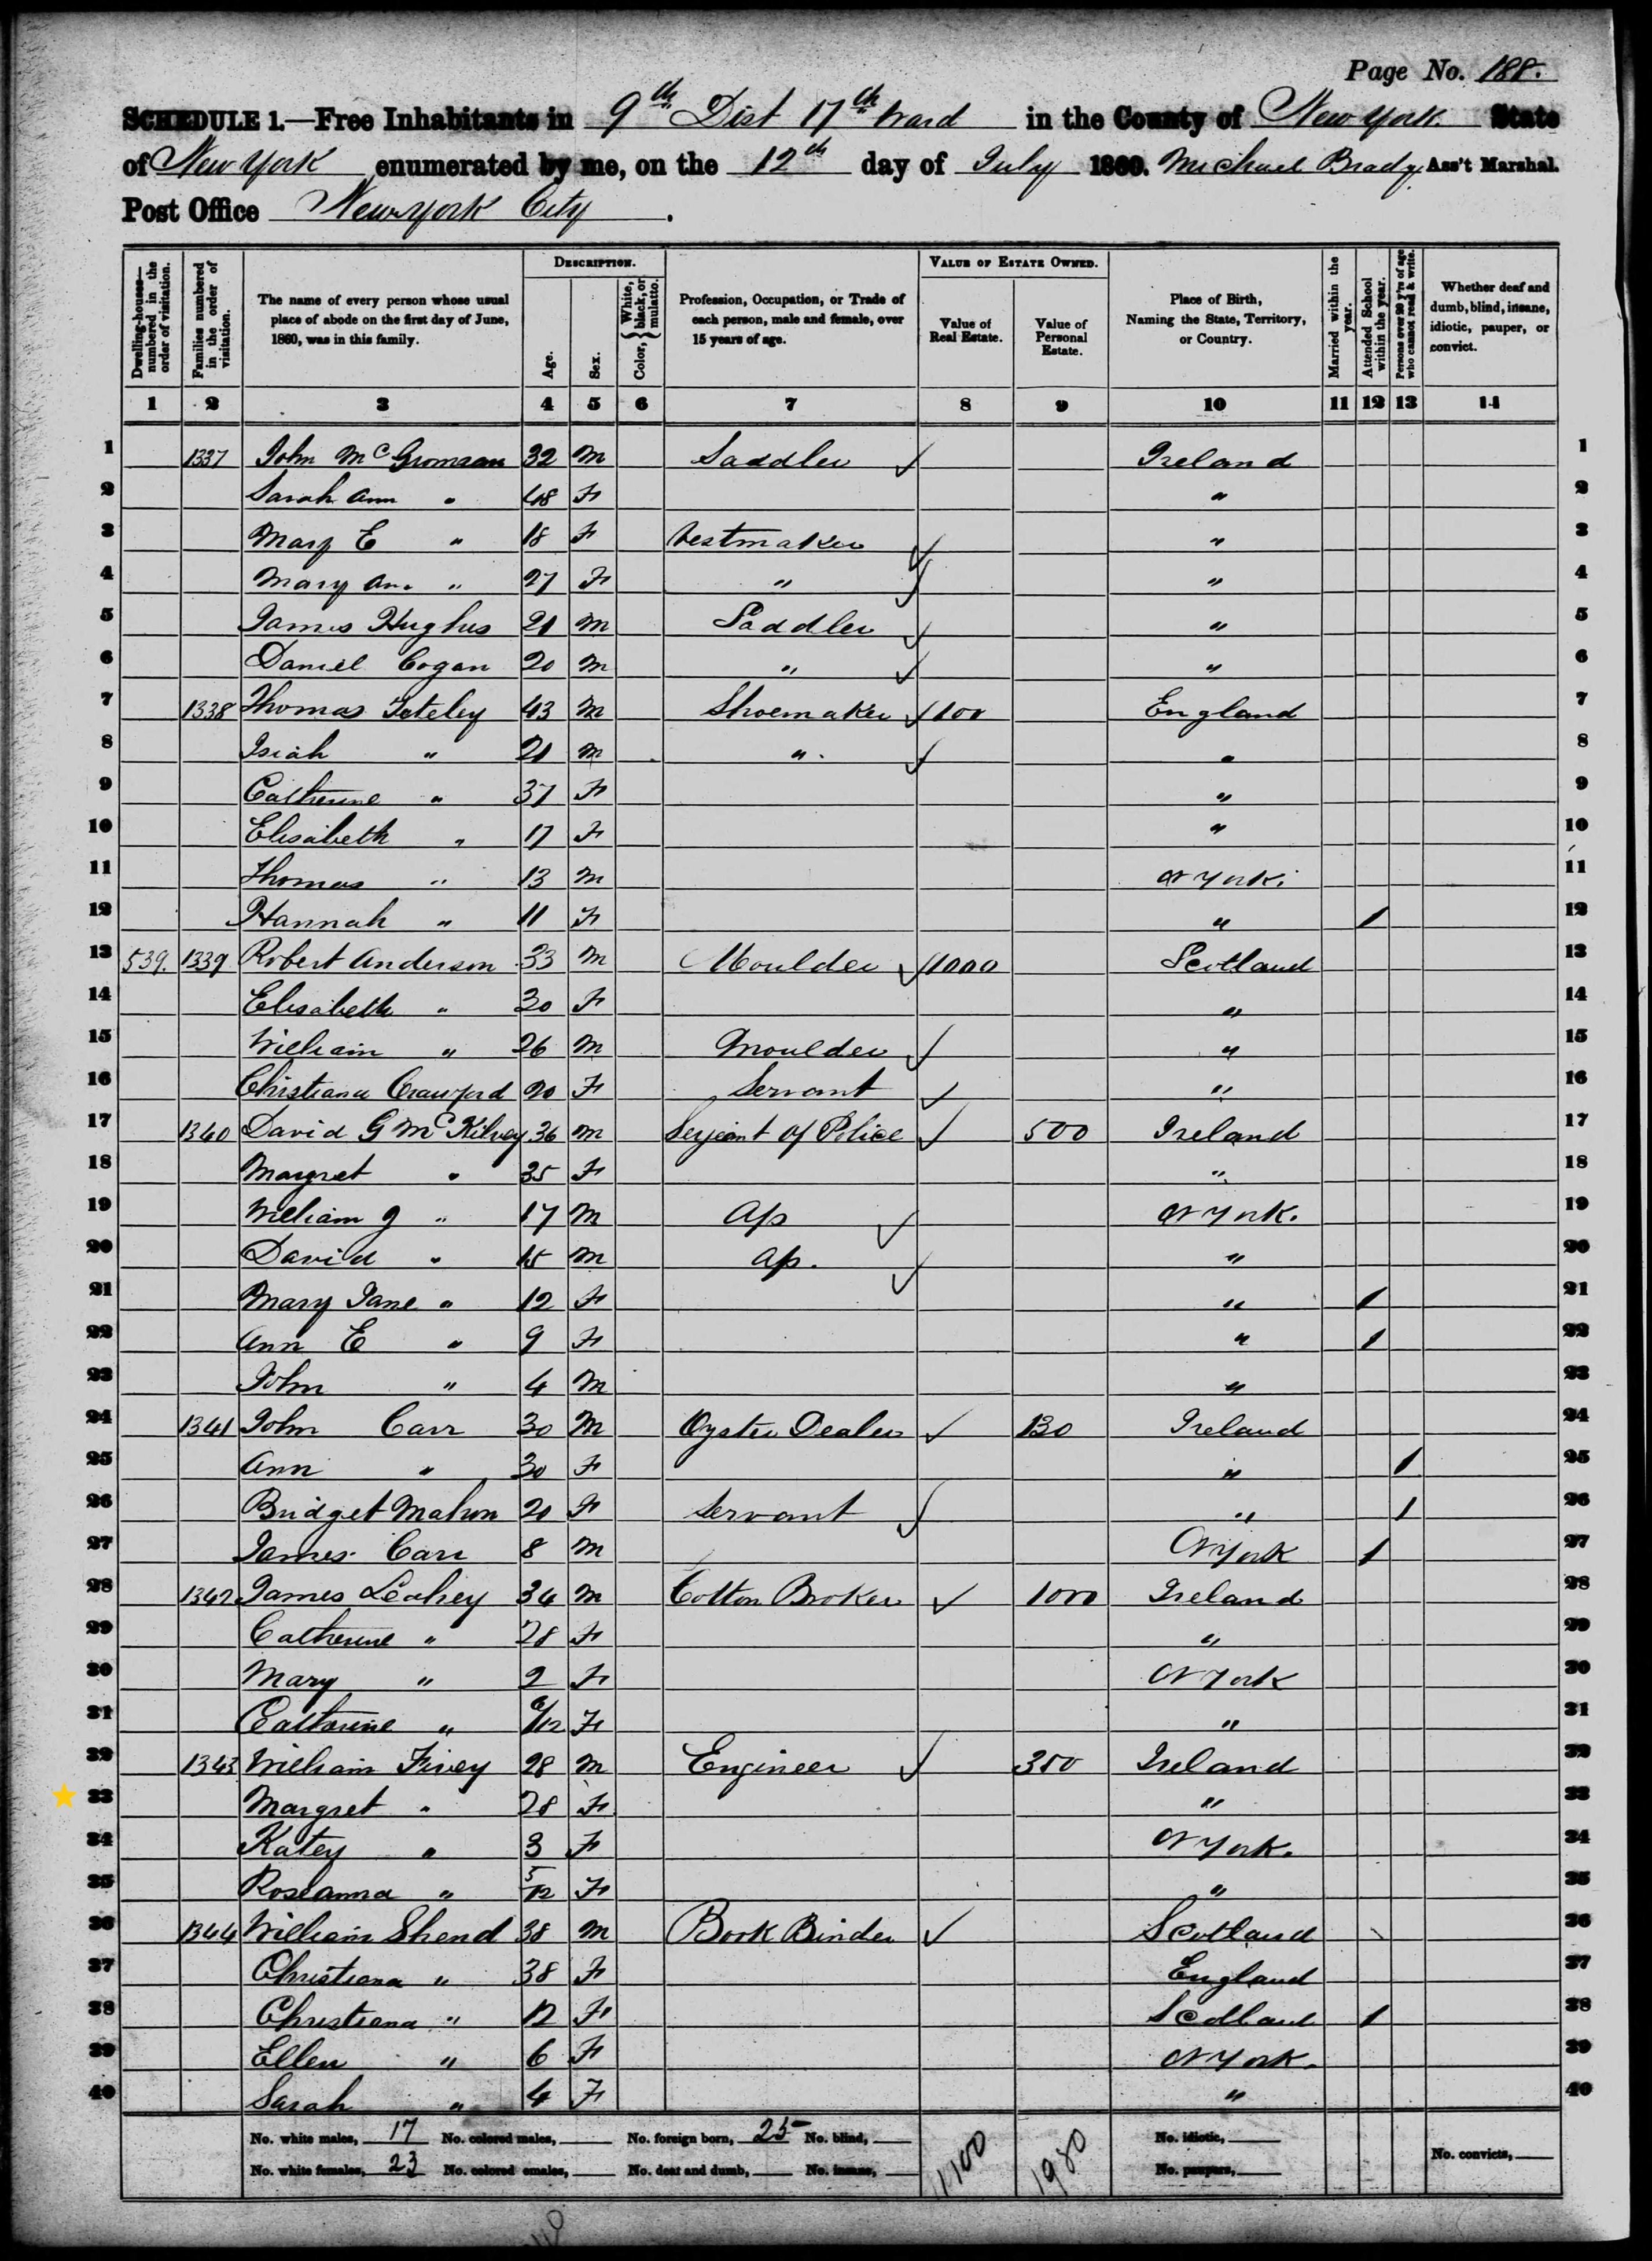 Page No. 188.
SCHEDULE 1.—Free Inhabitants in 9th Dist 17th Ward in the County of New York State
of New York enumerated by me, on the 12th day of July 1860. Michael Brady Ass't Marshal.
Post Office New York City.
Dwelling-houses—numbered in the order of visitation.
Families numbered in the order of visitation.
The name of every person whose usual place of abode on the first day of June, 1860, was in this family.
DESCRIPTION.
Age.
Sex.
Color, { White, black, or mulatto.
Profession, Occupation, or Trade of each person, male and female, over 15 years of age.
VALUE OF ESTATE OWNED.
Value of Real Estate.
Value of Personal Estate.
Place of Birth, Naming the State, Territory, or Country.
Married within the year.
Attended School within the year.
Persons over 20 y'rs of age who cannot read & write.
Whether deaf and dumb, blind, insane, idiotic, pauper, or convict.
1 2 3 4 5 6 7 8 9 10 11 12 13 14
1 1337 John 32 M Saddler Ireland 1
2 Sarah Ann " 48 F " 2
3 Mary E " 18 F Vestmaker " 3
4 Mary An. " 27 F " " 4
5 James Hughes 21 M Saddler " 5
6 Daniel Cogan 20 M " " 6
7 1338 Thomas 43 M Shoemaker 100 England 7
8 Isiah " 21 M " " 8
9 Catherine " 37 F " 9
10 Elisabeth " 17 F " 10
11 Thomas " 13 M N York 11
12 Hannah " 11 F " 1 12
13 539. 1339 Robert Anderson 33 M Moulder 1000 Scotland 13
14 Elisabeth " 30 F " 14
15 William " 26 M Moulder " 15
16 Christiana Crawford 20 F Servant " 16
17 1340 David G McKilvey 36 M Serjeant of Police 500 Ireland 17
18 Margret " 35 F " 18
19 William J " 17 M Ap N York. 19
20 David " 15 M Ap. " 20
21 Mary Jane " 12 F " 1 21
22 Ann E " 9 F " 1 22
23 John " 4 M " 23
24 1341 John Carr 30 M Oyster Dealer 130 Ireland 24
25 Ann " 30 F " 1 25
26 Bridget Mahon 20 F Servant " 1 26
27 James Carr 8 M N York 1 27
28 1342 James Leahey 34 M Cotton Broker 1000 Ireland 28
29 Catherine " 28 F " 29
30 Mary " 2 F N York 30
31 Catherine " 6/12 F " 31
32 1343 William Fivey 28 M Engineer 350 Ireland 32
33 Margret " 28 F " 33
34 Katey " 3 F N York. 34
35 Roseanna " 5/12 F " 35
36 1344 William Shend 38 M Book Binder Scotland 36
37 Christiana " 38 F England 37
38 Christiana " 12 F Scotland 1 38
39 Ellen " 6 F N York. 39
40 Sarah " 4 F " 40
No. white males, 17 No. colored males, No. foreign born, 25 No. blind, 1100 1980 No. idiotic,
No. white females, 23 No. colored emales, No. deaf and dumb, No. insane, No. paupers, No. convicts,